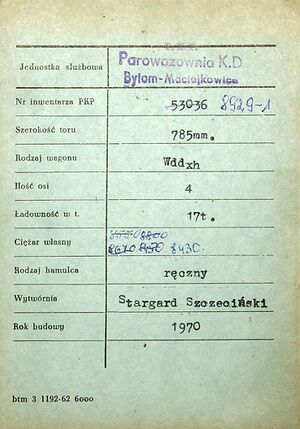 Jednostka służbowa
Parowozownia K.D
Bytom-Maciejkowice
Nr inwentarza PKP 53036 8929-1
Szerokość toru 785mm.
Rodzaj wagonu Wddxh
Ilość osi 4
Ładowność w t. 17t.
Ciężar własny 8800 8670 8450 8430.
Rodzaj hamulca ręczny
Wytwórnia Stargard Szczeciński
Rok budowy 1970
btm 3 1192-62 6000